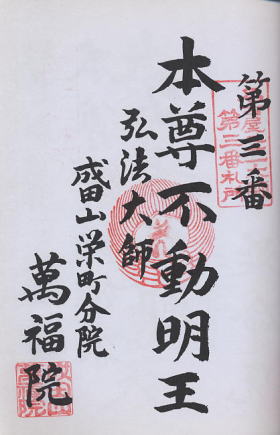 第三番
第三番札所
本尊不動明王
弘法大師
成田山栄町分院
萬福院